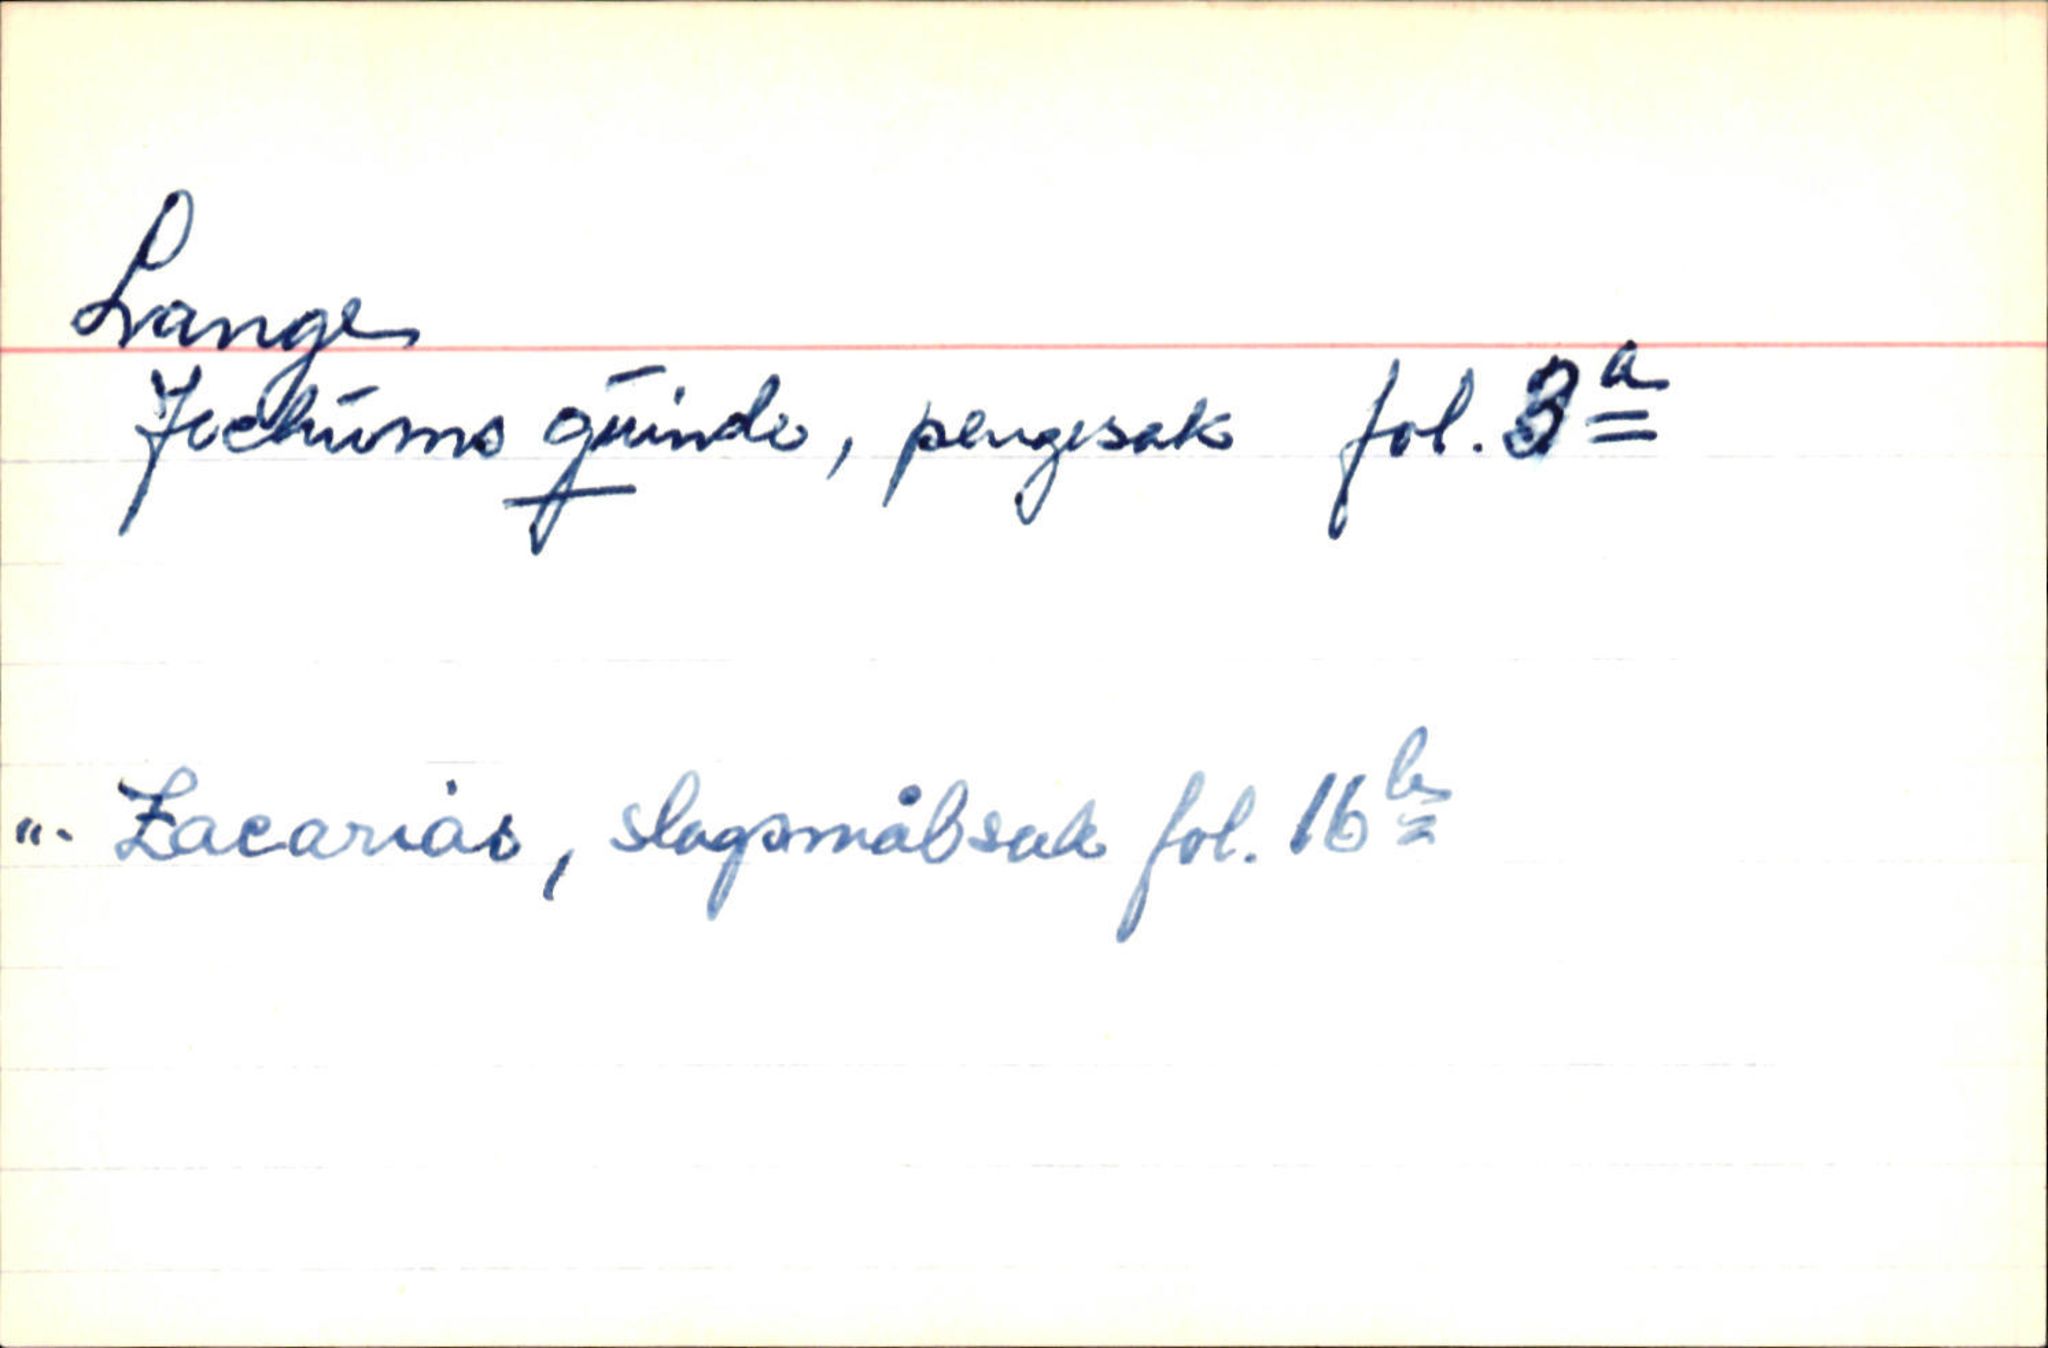 Lange
Jochūms qūinde, pengesak fol. 3ª
"- Zacarias, slagsmålsak fol. 16ᵇ